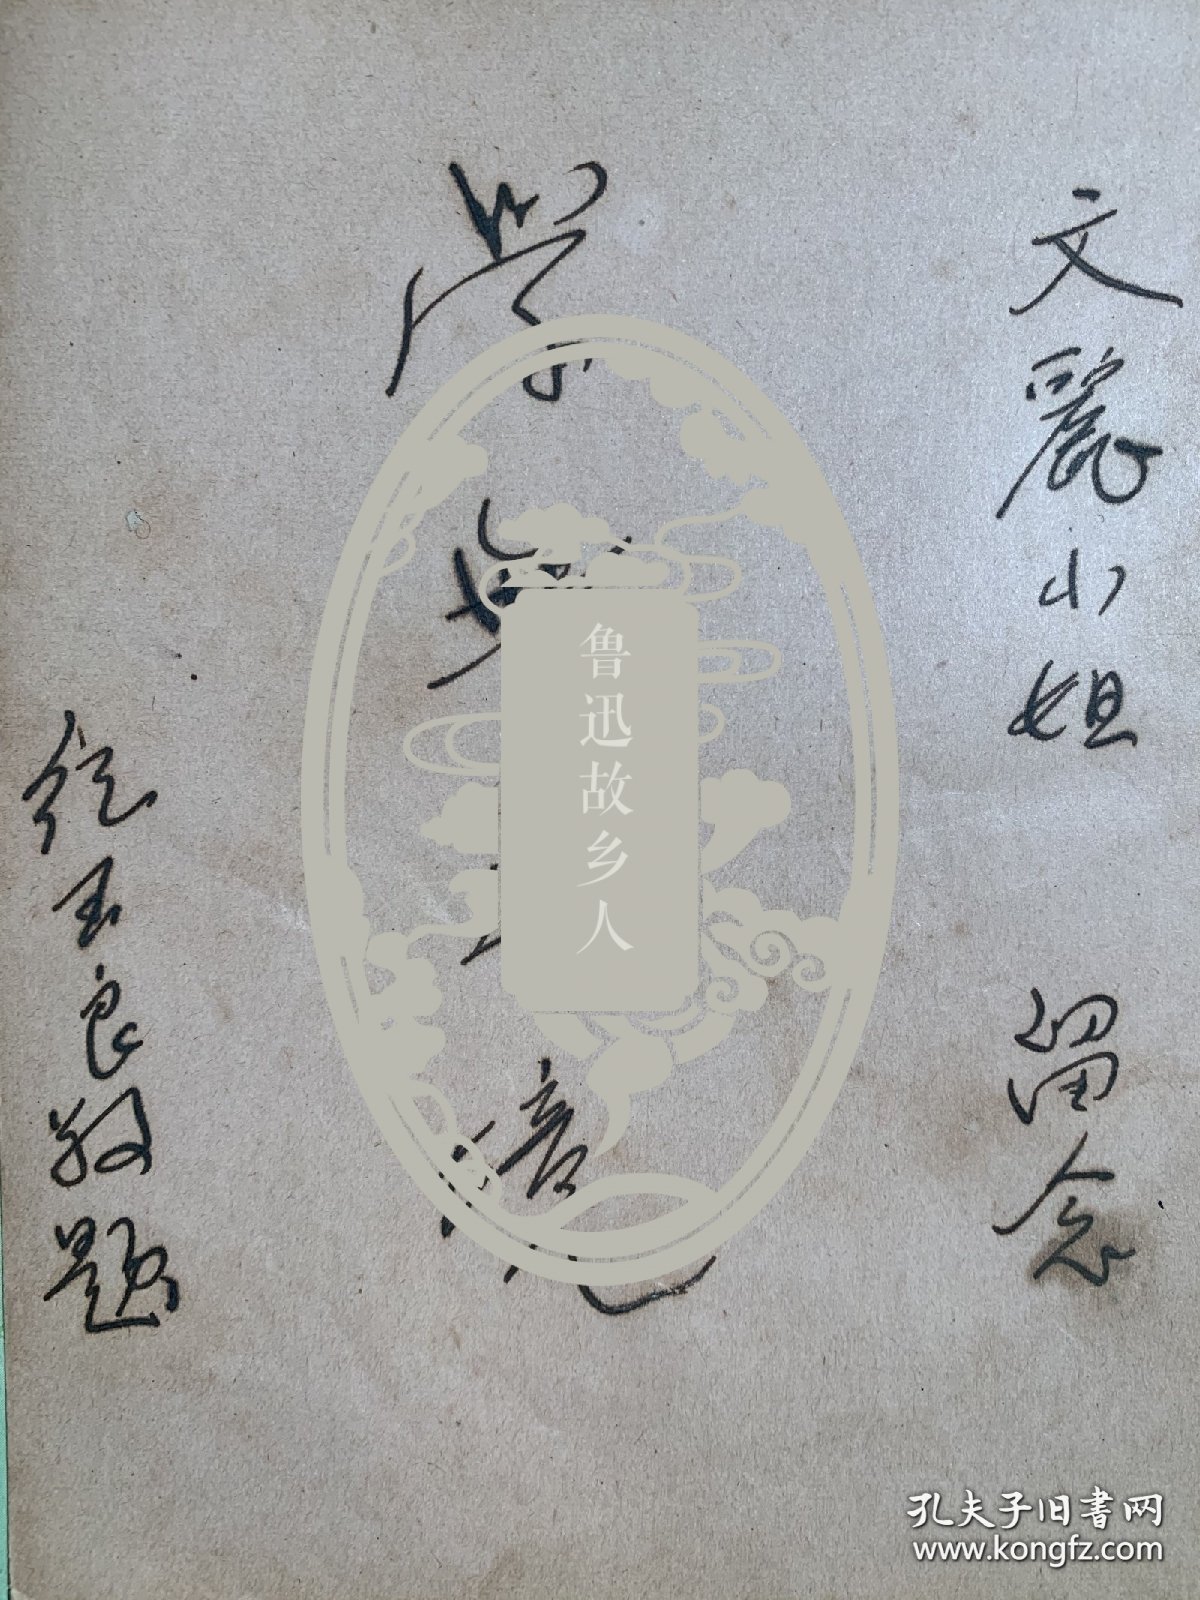 文麗小姐 留念
學
紀玉良敬題
鲁迅故乡人
孔夫子旧書网
www.kongfz.com